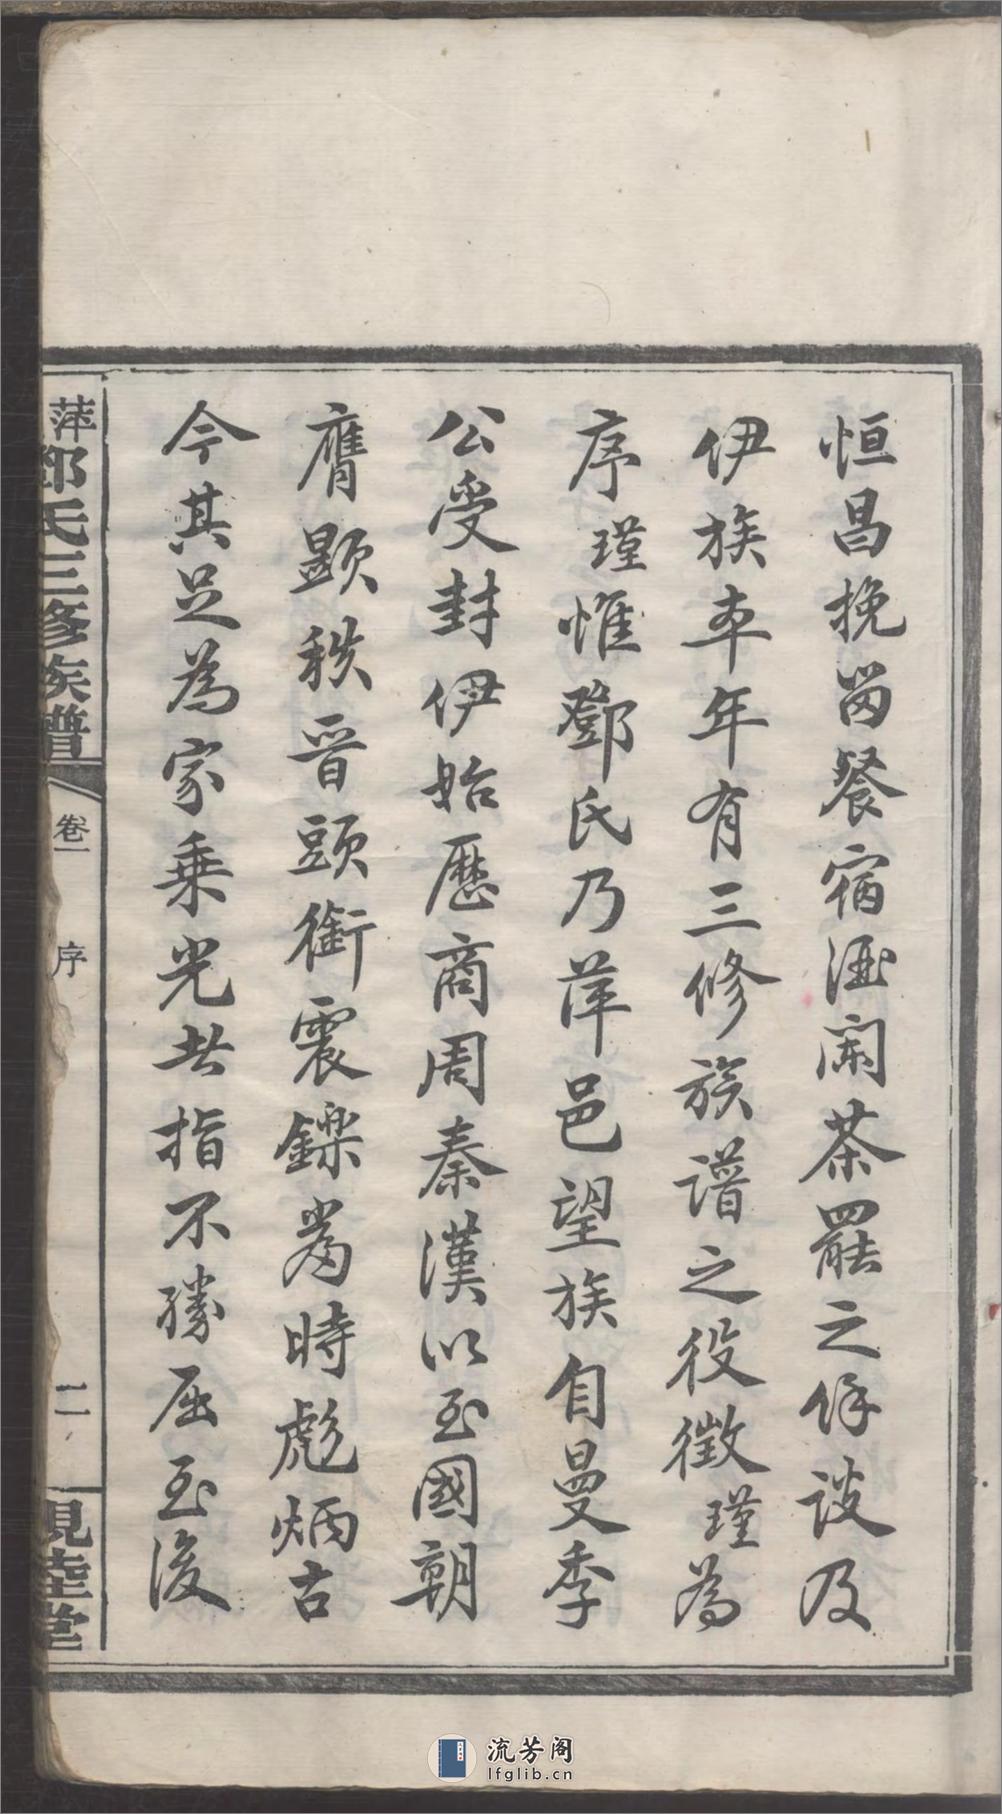 恒昌挽留餐宿酒闌茶罷之餘談及
伊族本年有三修族譜之役徵瑾為
序瑾惟鄧氏乃萍邑望族自曼季
公受封伊始歷商周秦漢以至國朝
膺顯秩晉頭銜震鑠當時彪炳古
今其足為家乘光者指不勝屈至後
萍鄧氏三修族譜
卷一
序
二
睦堂
流芳阁
lfglib.cn